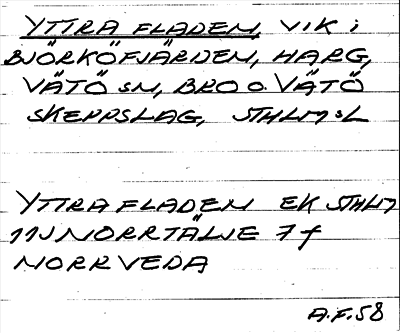 YTTRA FLADEN, VIK i
BJÖRKÖFJÄRDEN, HARG,
VÄTÖ SN, BRO O. VÄTÖ
SKEPPSLAG, STHLMS L
YTTRA FLADEN EK STHLM
11J NORRTÄLJE 7f
NORRVEDA
A.F.58